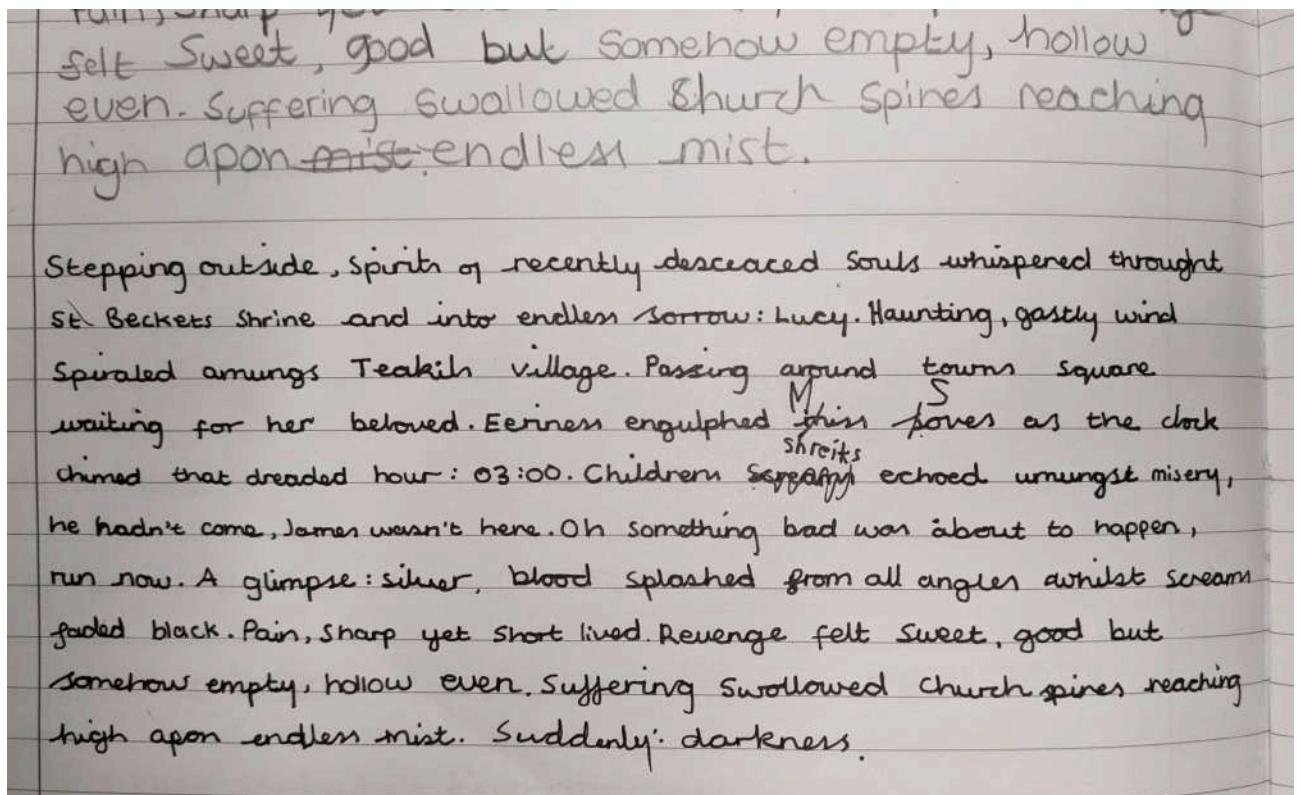 felt Sweet, good but Somehow empty, hollow
even. Suffering Swallowed Church Spines reaching
high apon mist. endless mist.
Stepping outside, spirits of recently desceaced souls whispered throught
St Beckets Shrine and into endless sorrow: Lucy. Haunting, gastly wind
Spiraled amungs Teakih village. Passing around towns square
waiting for her beloved. Eeriness engulphed as the clock
shreiks
chimed that dreaded hour: 03:00. Children echoed umungst misery,
he hadn't come, James wasn't here. Oh something bad was about to happen,
run now. A glimpse: silver, blood splashed from all angles whilst screams
faded black. Pain, Sharp yet short lived. Revenge felt sweet, good but
somehow empty, hollow even. Suffering Swollowed Church spines reaching
high apon endless mist. Suddenly: darkness.